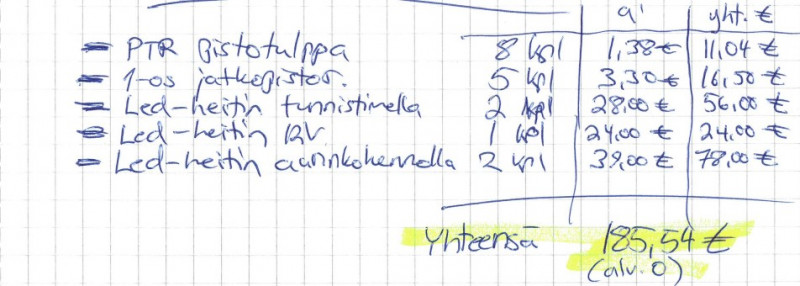 a' yht. €
- PTR pistotulppa 8 kpl 1,38 € 11,04 €
- 1-os jatkopistor. 5 kpl 3,30 € 16,50 €
- Led-heitin tunnistimella 2 kpl 28,00 € 56,00 €
- Led-heitin 12V 1 kpl 24,00 € 24,00 €
- Led-heitin aurinkokennolla 2 kpl 39,00 € 78,00 €
Yhteensä 185,54 €
(alv. 0)